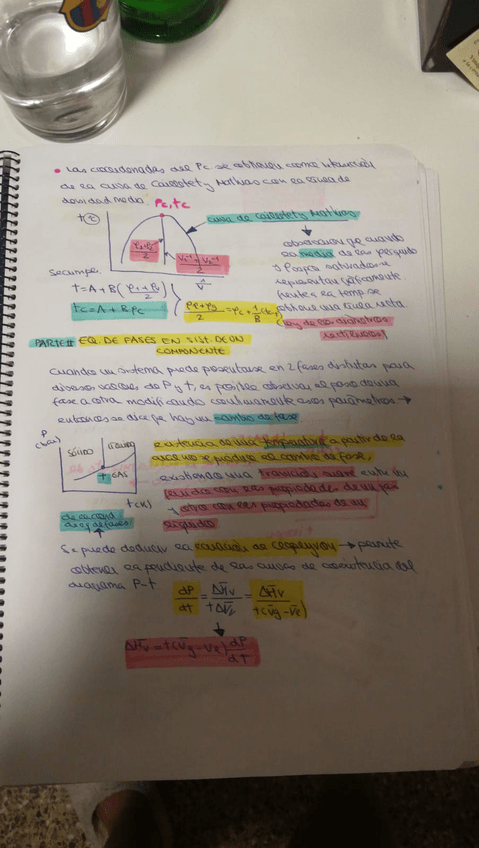 • Las coordenadas del Pc se obtienen como intersección
de la curva de Cailletet y Mathias con la línea de
densidad media.
Pc, tc
t
curva de Cailletet y Mathias
observación que cuando
la media de las
Se cumple:
t = A + B (ρl + ρg / 2)
tc = A + B ρc
ρl + ρg / 2 = ρc + 1/B
representan gráficamente
frente a la temp. se
obtiene una línea recta
(ley de los diámetros
rectilíneos)
PARTE II EQ. DE FASES EN SIST. DE UN
COMPONENTE
Cuando un sistema puede presentarse en 2 fases distintas para
diversos valores de P y t, es posible observar el paso de una
fase a otra modificando continuamente esos parámetros →
entonces se dice que hay un cambio de fase
P
SÓLIDO
LÍQUIDO
GAS
T
t (K)
existencia de una temperatura a partir de la
cual no se produce el cambio de fase,
existiendo una transición suave entre un
fluido con las propiedades de un gas
y otro con las propiedades de un
líquido
de eq de fases
Se puede deducir la ecuación de Clapeyron → permite
obtener la pendiente de las curvas de coexistencia del
diagrama P-t
dP/dt = ΔH̄v / tΔV̄v = ΔH̄v / t(V̄g - V̄l)
ΔH̄v = t(V̄g - V̄l) dP/dT